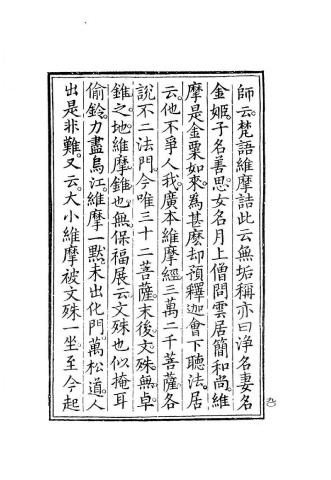 師云。梵語維摩詰此云無垢稱亦曰淨名妻名
金姬。子名善思。女名月上僧問雲居簡和尚。維
摩是金粟如來。為甚麽却預釋迦會下聽法。居
云。他不爭人我。廣本維摩經。三萬二千菩薩。各
說不二法門。今唯三十二菩薩。末後文殊。無卓
錐之地。維摩錐也無。保福展云。文殊也似掩耳
偷鈴。力盡烏江。維摩一默。未出化門。萬松道。人
出是非難。又云。大小維摩被文殊一坐。至今起